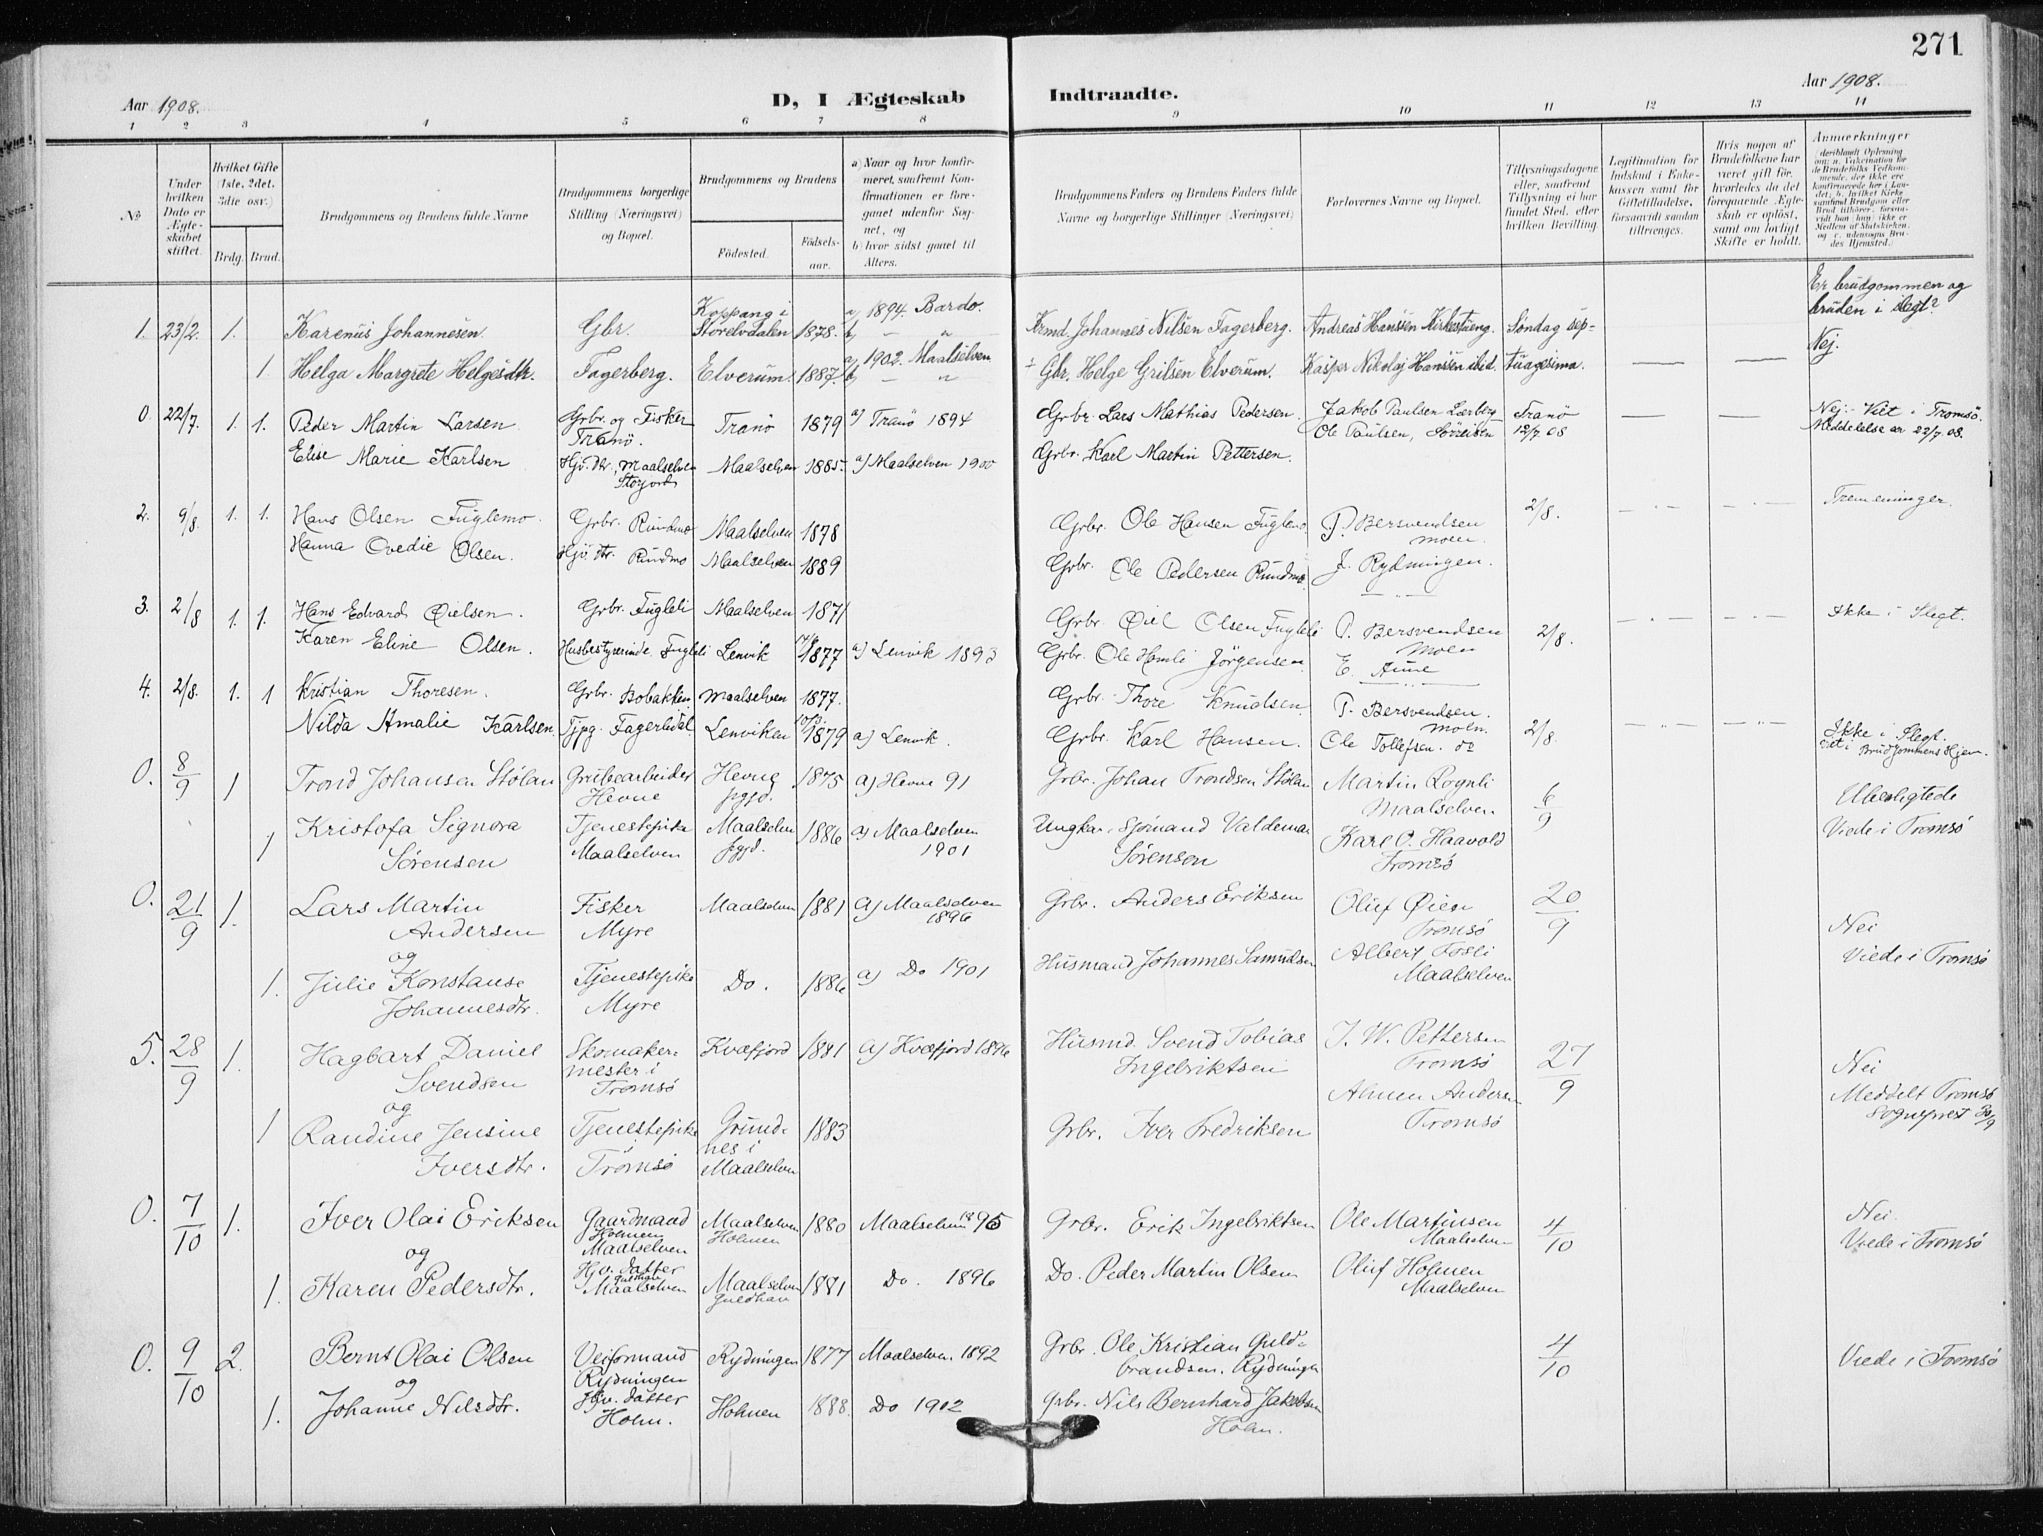 271
Aar 1908.
D, I Ægteskab Indtraadte.
Aar 1908.
1 2 3 4 5 6 7 8 9 10 11 12 13 14
№
Under hvilken Dato er Ægteskabet stiftet.
Hvilket Gifte (1ste, 2det, 3die osv.)
Brdg. Brud.
Brudgommens og Brudens fulde Navne
Brudgommens borgerlige Stilling (Næringsvei) og Bopæl.
Brudgommens og Brudens
Fødested.
Fødselsaar.
a) Naar og hvor konfirmeret, saafremt Konfirmationen er foregaaet udenfor Sognet, og
b) hvor sidst gaaet til Alters.
Brudgommens Faders og Brudens Faders fulde Navne og borgerlige Stillinger (Næringsvei)
Forlovernes Navne og Bopæl.
Tillysningsdagene eller, saafremt Tillysning ei har fundet Sted, efter hvilken Bevilling.
Legitimation for Indskud i Enkekassen samt for Giftetilladelse, forsaavidt saadan tiltrænges.
Hvis nogen af Brudefolkene har været gift før, hvorledes da det foregaaende Ægteskab er opløst, samt om lovligt Skifte er holdt.
Anmerkninger
Er brudgommen og bruden i slegt?
1. 23/2. 1. Karenus Johannesen. Gbr. Koppang i Storelvdalen 1878. a) 1894 Bardo. b) — " Krmd. Johannes Nilsen Fagerberg. Andreas Hanssen Kirkestueng. Søndag sep-
Nej.
1. Helga Margrete Helgesdtr. Fagerberg. Elverum. 1887. a) 1902. Maalselven b) — " Gbr. Helge Grilsen Elverum. Kasper Nikolaj Hanssen ibid. tuagesima. — —
0. 22/7. 1. 1. Peder Martin Larsen Grbr. og Fisker Tranø. Tranø 1879 a) Tranø 1894 Grbr. Lars Mathias Pedersen. Jakob Paulsen Lærberg Tranø — — Nej. - Viet i Tromsø.
Ole Paulsen, 12/7 08 Meddelelse av 22/7. 08.
Elise Marie Karlsen Hjv. dtr, Maalselven Storjord Maalselven 1885. a) Maalselven 1900 Grbr. Karl Martin Pettersen.
2. 9/8. 1. 1. Hans Olsen Fuglemo. Grbr. Rundmo Maalselven 1878 Grbr. Ole Hansen Fuglemo P. Bersvendsen Moen. 2/8. — " — — " — Tremeninger.
Hanna Ovedie Olsen. Hjv. dtr. Rundmo Maalselven 1889 Grbr. Ole Pedersen Rundmo J. Rydningen.
3. 2/8 1. 1. Hans Edvard Øielsen. Grbr. Fugleli Maalselven 1871 Grbr. Øiel Olsen Fugleli P. Bersvendsen Moen 2/8. — " — — " — Ikke i Slegt.
Karen Eline Olsen. Husbestyrerinde Fugleli Lenvik 1877 a) Lenvik 1893 Grbr. Ole Hemli Jörgensen E. Aune
4. 2/8. 1. 1 Kristian Thoresen. Grbr. Bobakken Maalselven 1877. Grbr. Thore Knudsen. P. Bersvendsen. Moen. 2/8. — " — — " — Ikke i Slegt.
Nilda Amalie Karlsen Tjpg. Fagerlidal Lenviken 1879 a) Lenvik. Grbr. Karl Hansen. Ole Tollefsen. do Viet i Brudgommens Hjem.
0. 8/9 1 Trond Johansen Stølan Grubearbeider Hevne Hevne pgjd. 1875 a) Hevne 91 Grbr. Johan Trondsen Stølan Martin Rognli Maalselven 6/9 Ubeslegtede
1 Kristofa Signora Sørensen Tjenestepike Maalselven Maalselven pgjd. 1886 a) Maalselven 1901 Ungkar, Sjømand Valdemar Sørensen Karl O. Haavold Tromsø Viede i Tromsø
0. 21/9 1. Lars Martin Andersen Fisker Myre Maalselven 1881 a) Maalselven 1896 Grbr. Anders Eriksen Oluf Øien Tromsø 20/9 Nei
og
1. Julie Konstanse Johannesdtr. Tjenestepike Myre Do. 1886 a) Do 1901 Husmand Johannes Samuelsen Albert Fosli Maalselven Viede i Tromsø
5. 28/9 1. Hagbart Daniel Svendsen Skomakermester i Tromsø Kvæfjord 1881 a) Kvæfjord 1896 Husmd. Svend Tobias Ingebriktsen J. W. Pettersen Tromsø 27/9 Nei
og
1 Randine Jensine Iversdtr. Tjenestepike i Tromsø Grundnes i Maalselven 1883 Grbr. Iver Fredriksen Andersen Tromsø Meddelt Tromsø Sogneprest 30/9
0. 7/10 1. Iver Olai Eriksen Gaardmand Holmen Maalselven Maalselven Holmen 1880 Maalselven 1895 Grbr. Erik Ingebriktsen Ole Martinsen Maalselven 4/10 Nei.
og
1. Karen Pedersdtr. Hjv. datter Maalselven Maalselven Guldhav 1881 Do. 1896 Do. Peder Martin Olsen Oluf Holmen Maalselven Viede i Tromsø
0. 9/10 2. Bernt Olai Olsen Veiformand Rydningen Rydningen 1877 Maalselven 1892 Grbr. Ole Kristian Guldbrandsen. Rydningen 4/10 Viede i Tromsø
og
1. Johanne Nilsdtr. Hjv. datter Holm. Holmen 1888. Do 1902 Grbr. Nils Bernhard Jakobsen Holm.